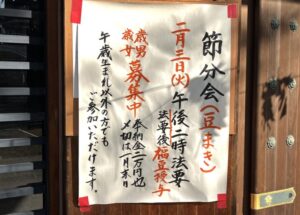 節分会(豆まき)
二月三日(火)午後二時法要
法要後福豆授与
歳男
歳女
募集中
奉納金二万円也
〆切は一月末日
午歳生まれ以外の方でも
ご参加いただけます。